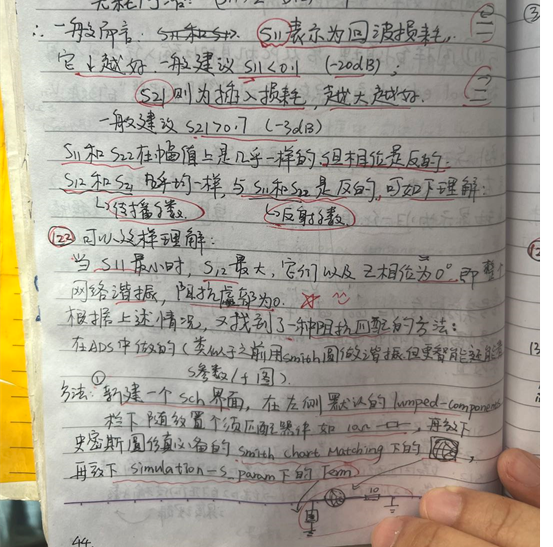 ∴ 一般而言: S11表示为回波损耗,
它↓越好 一般建议 S11<0.1 (-20dB),
S21则为插入损耗, 越大越好.
一般建议 S21>0.7 (-3dB)
S11和S22在幅值上是几乎一样的,但相位是反的.
S12和S21 几乎均一样, 与S11和S22是反的,可如下理解:
传播参数. 反射参数.
122 可以这样理解:
当 S11最小时, S12最大, 它们以及Z相位为0°,即整个
网络谐振, 阻抗虚部为0.
根据上述情况, 又找到了一种阻抗匹配的方法:
在ADS中做的(类似于之前用smith圆做谐振,但更智能
S参数/f 图).
方法:① 新建一个sch界面, 在左侧默认的 lumped-components
栏下随放置个须匹配器件如 10Ω, 再放下
史密斯圆仿真必备的 smith chart Matching 下的
再放下 simulation-S_param下的Term
10
44